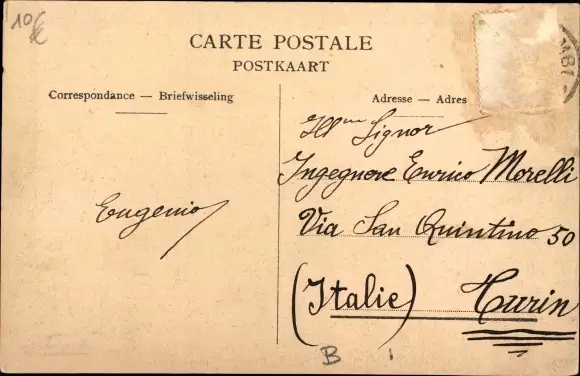 10€
CARTE POSTALE
POSTKAART
Correspondance — Briefwisseling
Adresse — Adres
Ill.mo Signor
Ingegnere Enrico Morelli
Via San Quintino 50
(Italie) Turin
Eugenio
B